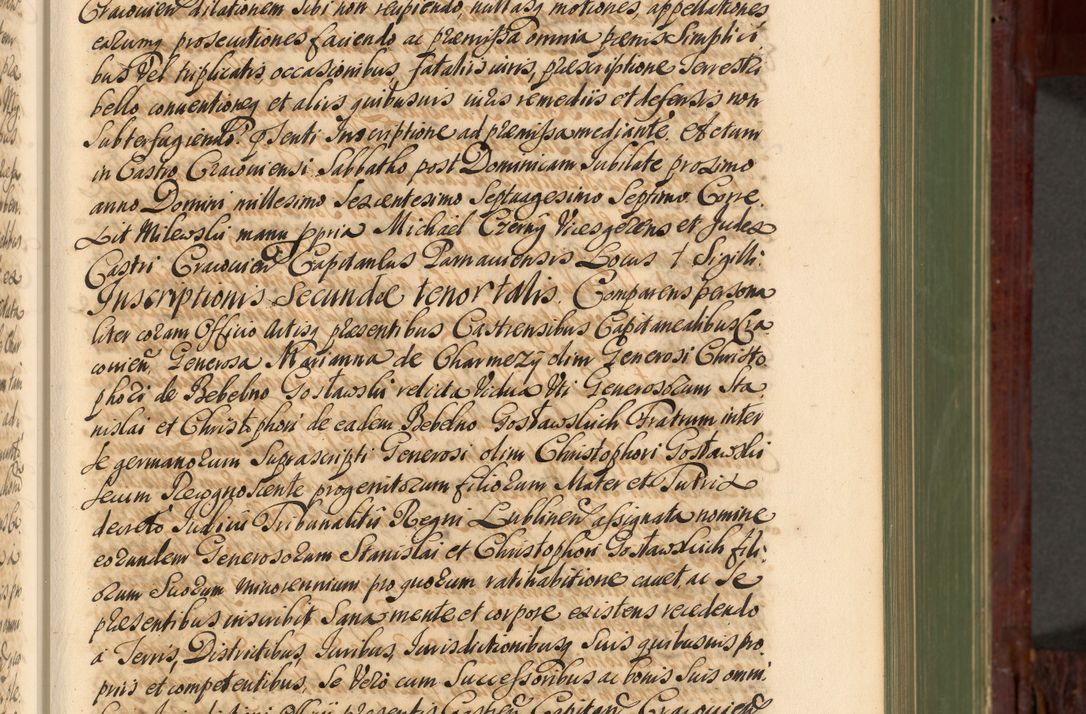 Cracovien dilationem sibi non recipiendo, nullasq motiones, appellationes
earumq prosecutiones faciendo ac præmissa omnia pænis simplici
bus vel triplicatis, occasionibus, fatalis iuris, præscriptione Terrestri
bello conventioneq et aliis quibusvis iuris remediis et defensis non
subterfugiendo. Psenti Inscriptione ad præmissa mediante. Actum
in Castro Cracoviensi Sabbatho post Dominicam Jubilate proximo
anno Domini millesimo Sexcentesimo Septuagesimo Septimo. Corre.
xit Milewski manu ppria Michael Czerny Vicesgerens et Judex
Castri Cracovien Capitaneus Parnaviensis Locus † Sigilli.
Inscriptionis Secundæ tenor talis. Comparens persona
liter coram Officio Actisq præsentibus Castrensibus Capitanealibus Cra
covien, Generosa Marianna de Charmęzy olim Generosi Christo
phori de Bebelno Gosławski relicta Vidua Uti Generosorum Sta
nislai et Christophori de eadem Bebelno Gosławskich Fratrum inter
se germanorum Suprascripti Generosi olim Christophori Gosławski
secum Recognoscente progenitorum filiorum Mater et Tutrix
decreto Iudicii Tribunalitii Regni Lublinen assignata nomine
eorundem Generosorum Stanislai et Christophori Gosławskich fili
orum Suorum minorennium pro quorum ratihabitione cavet ac Se
præsentibus inscribit Sana mente et corpore existens recedendo
à Terris, Districtibus, Iuribus, Iurisdictionibusq Suis quibusvis pro
priis et competentibus, Se Vero cum Successoribus ac bonis Suis omni